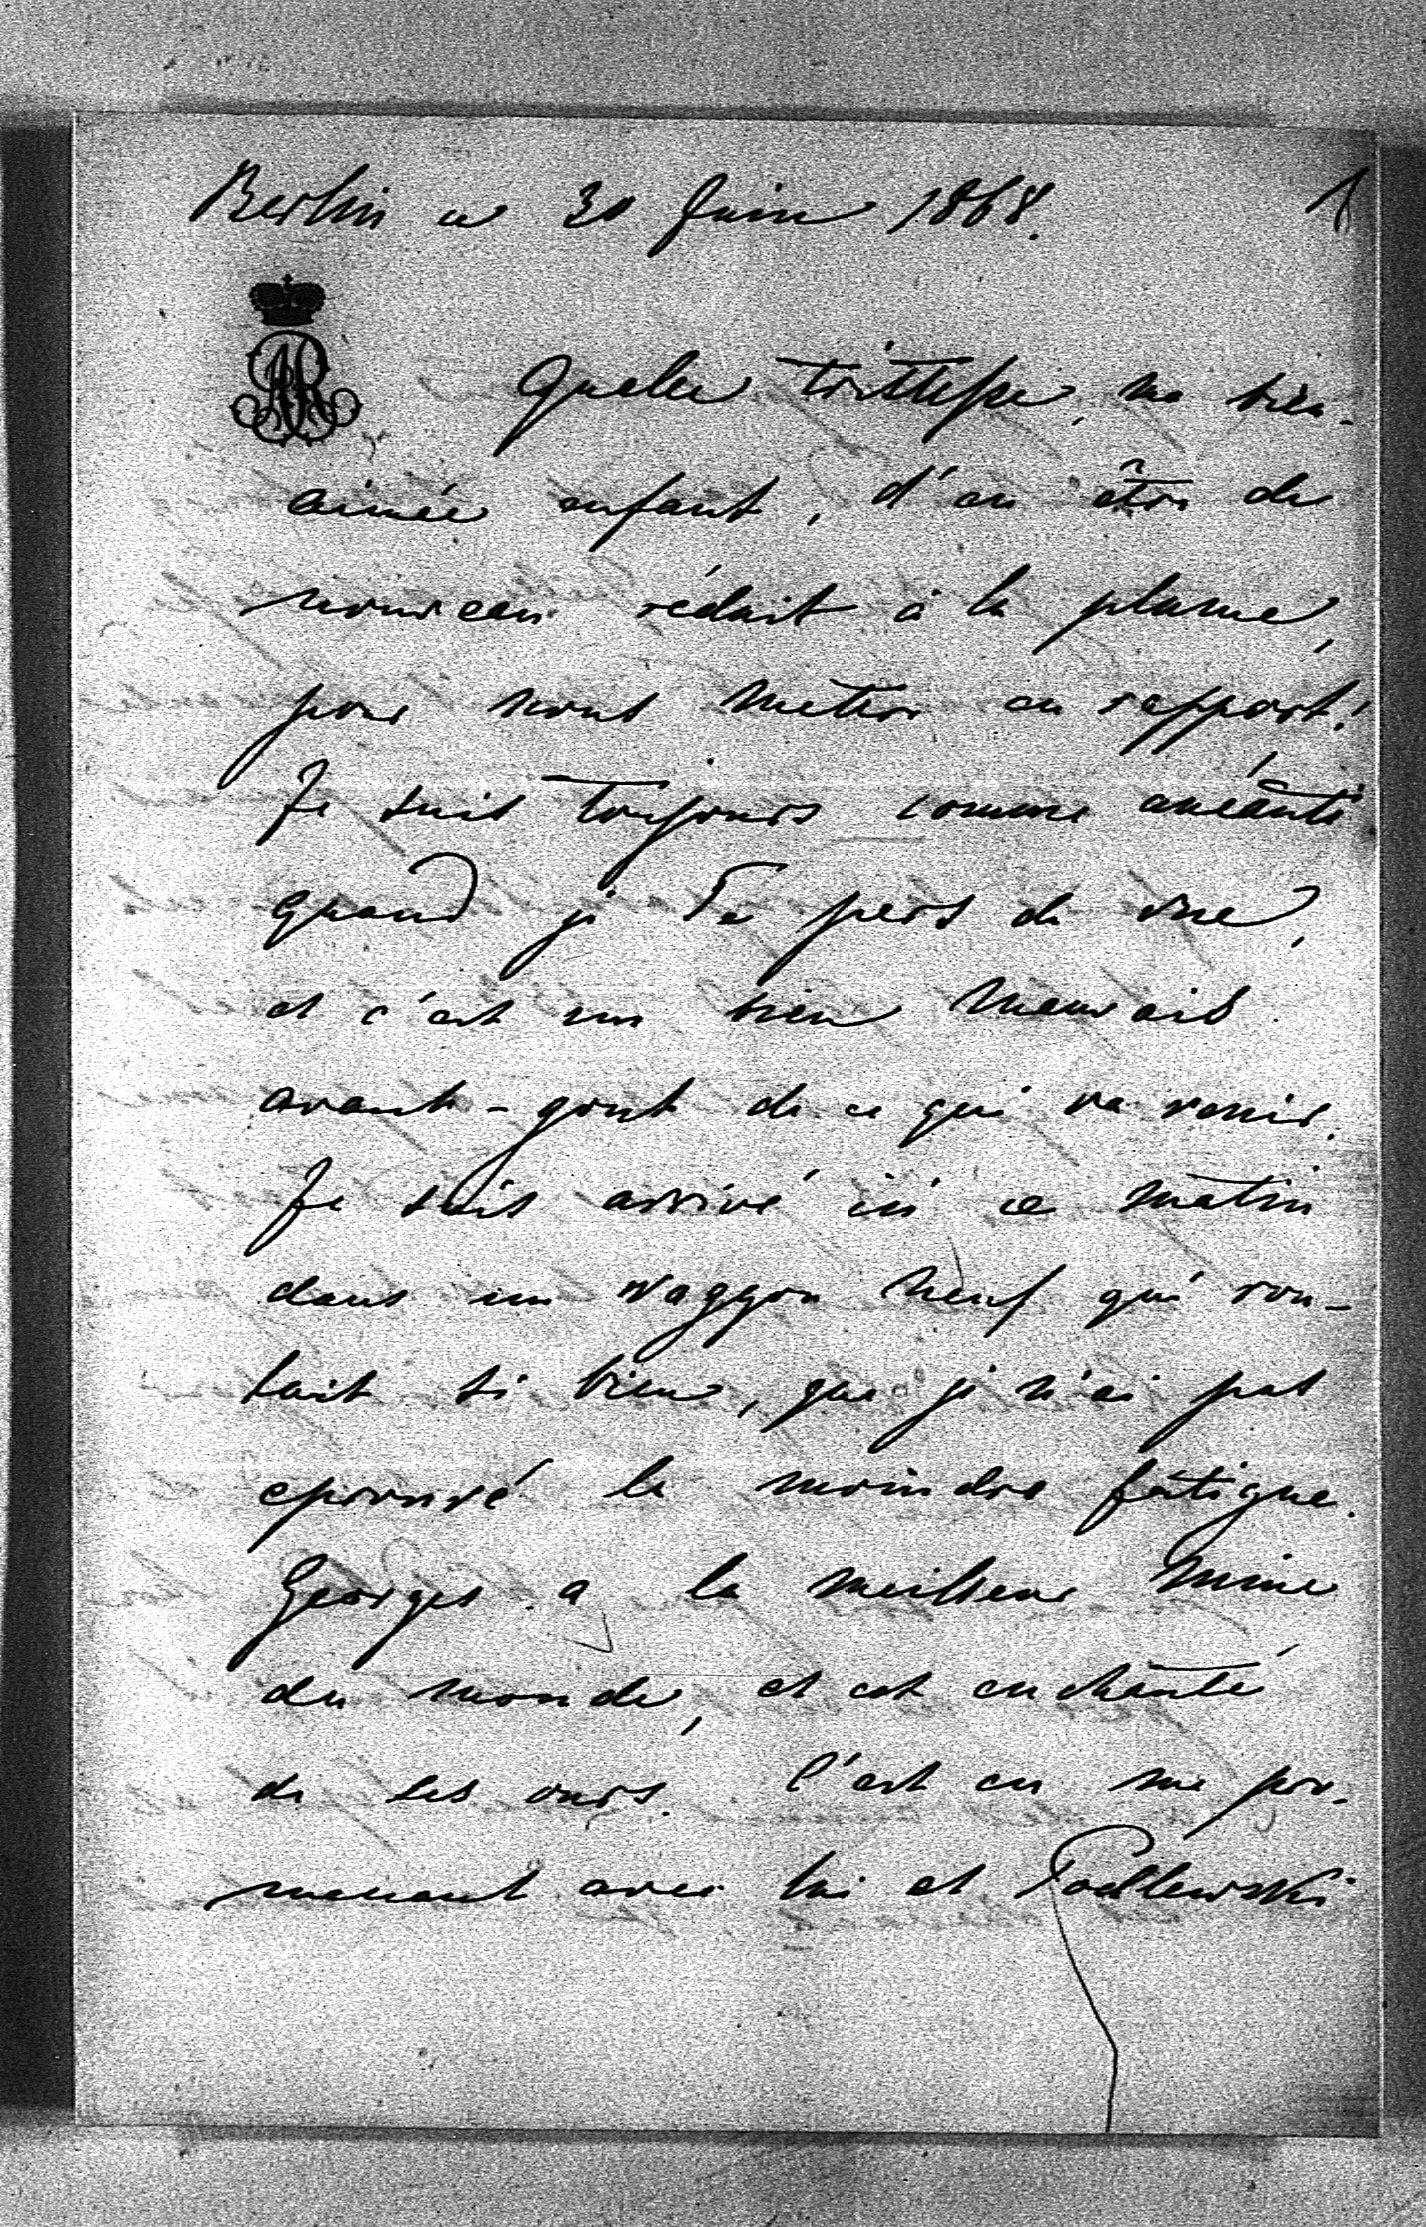 Berlin ce 30 Juin 1868.
1
Quelle tristesse, ma bien-
aimée enfant, d'en être de
nouveau réduit à la plume,
pour nous mettre en rapport!
Je suis toujours comme anéanti
quand je Te pers de vue,
et c'est un bien mauvais
avant-gout de ce qui va venir.
Je suis arrivé ici ce matin
dans un waggon neuf qui rou-
lait si bien, que je n'ai pas
eprouvé la moindre fatigue.
Georges a la meilleure mine
du monde, et est enchanté
de ses ours. C'est en me pro-
menant avec lui et Podlewski